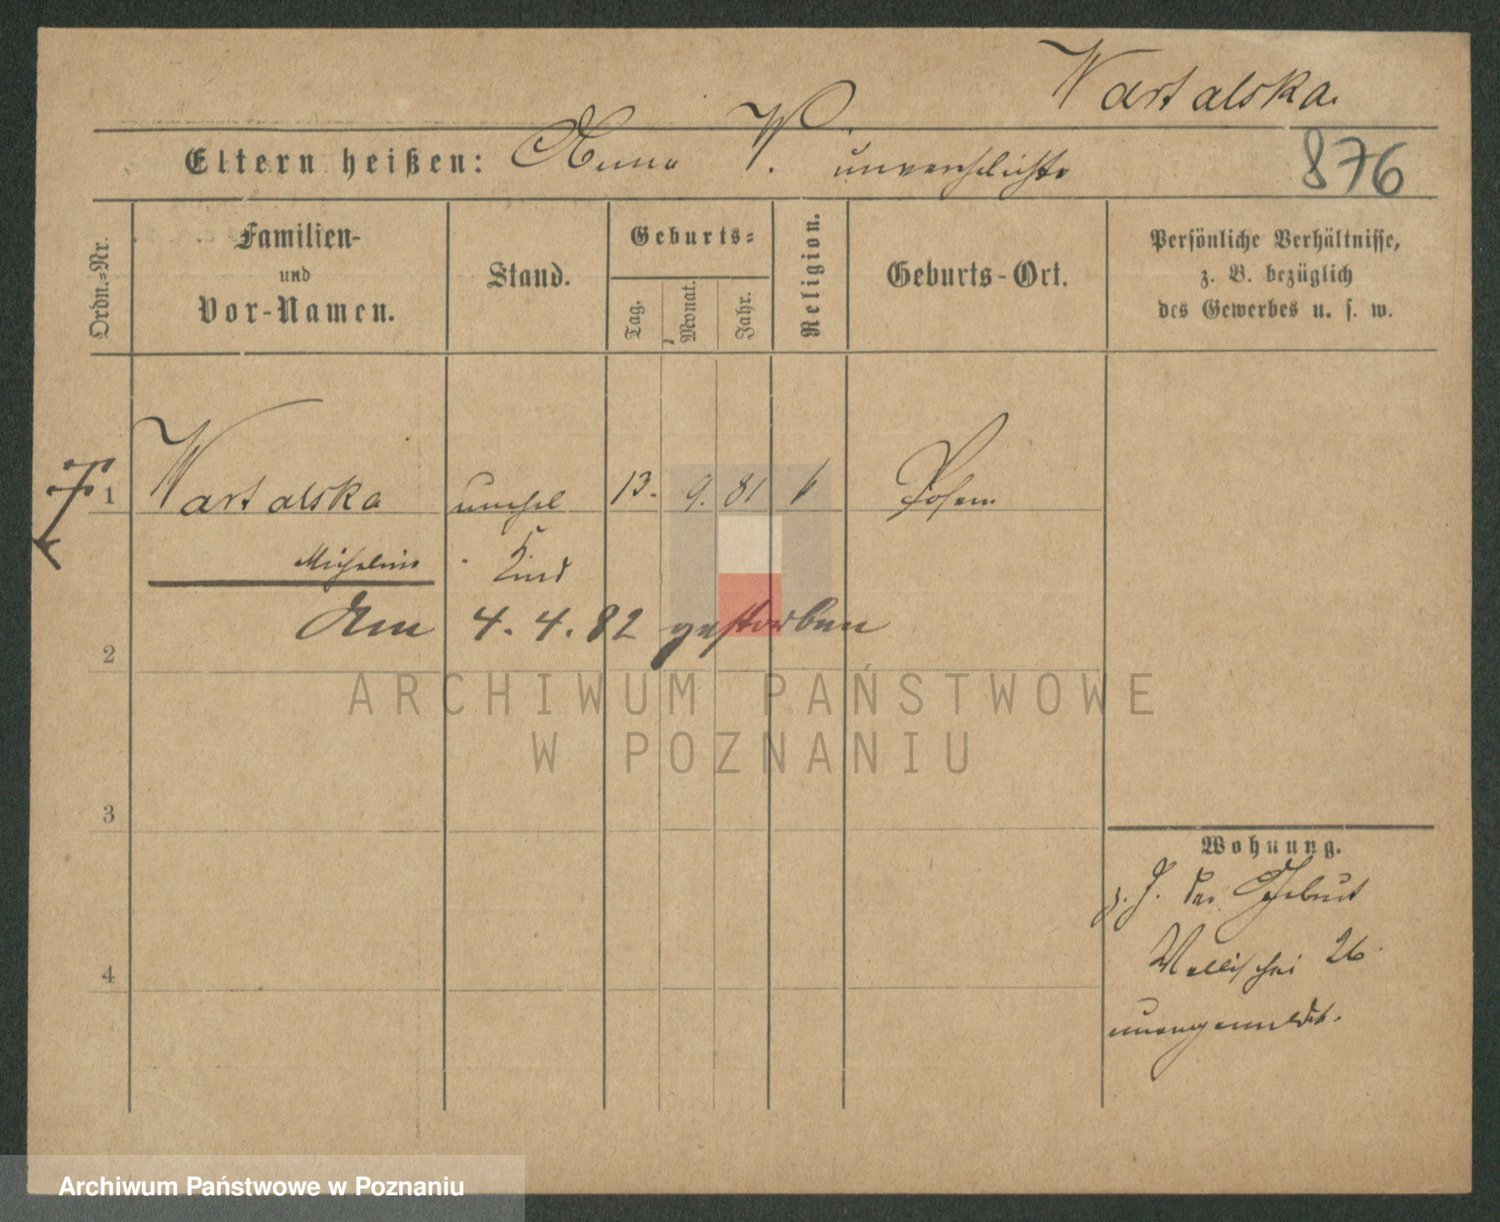 Wartalska.
Eltern heißen: Anna W. unverehelichte
876
Ordn.=Nr.
Familien-
und
Vor-Namen.
Stand.
Geburts=
Tag.
Monat.
Jahr.
Religion.
Geburts-Ort.
Persönliche Verhältnisse,
z. B. bezüglich
des Gewerbes u. s. w.
1 Wartalska unehel 13. 9. 81 k Posen
Michalina Kind
Am 4. 4. 82 gestorben
2
3
4
Wohnung.
z. Z. der Geburt
Wallischei 26
unangemeldet.
ARCHIWUM PAŃSTWOWE
W POZNANIU
Archiwum Państwowe w Poznaniu